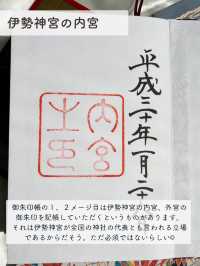 伊勢神宮の内宮
平成三十年一月二十
内宮
之印
御朱印帳の1、2メージ目は伊勢神宮の内宮、外宮の
御朱印を記帳していただくというものがあります。
それは伊勢神宮が全国の神社の代表とも言われる立場
であるからだそう。ただ必須ではないらしい